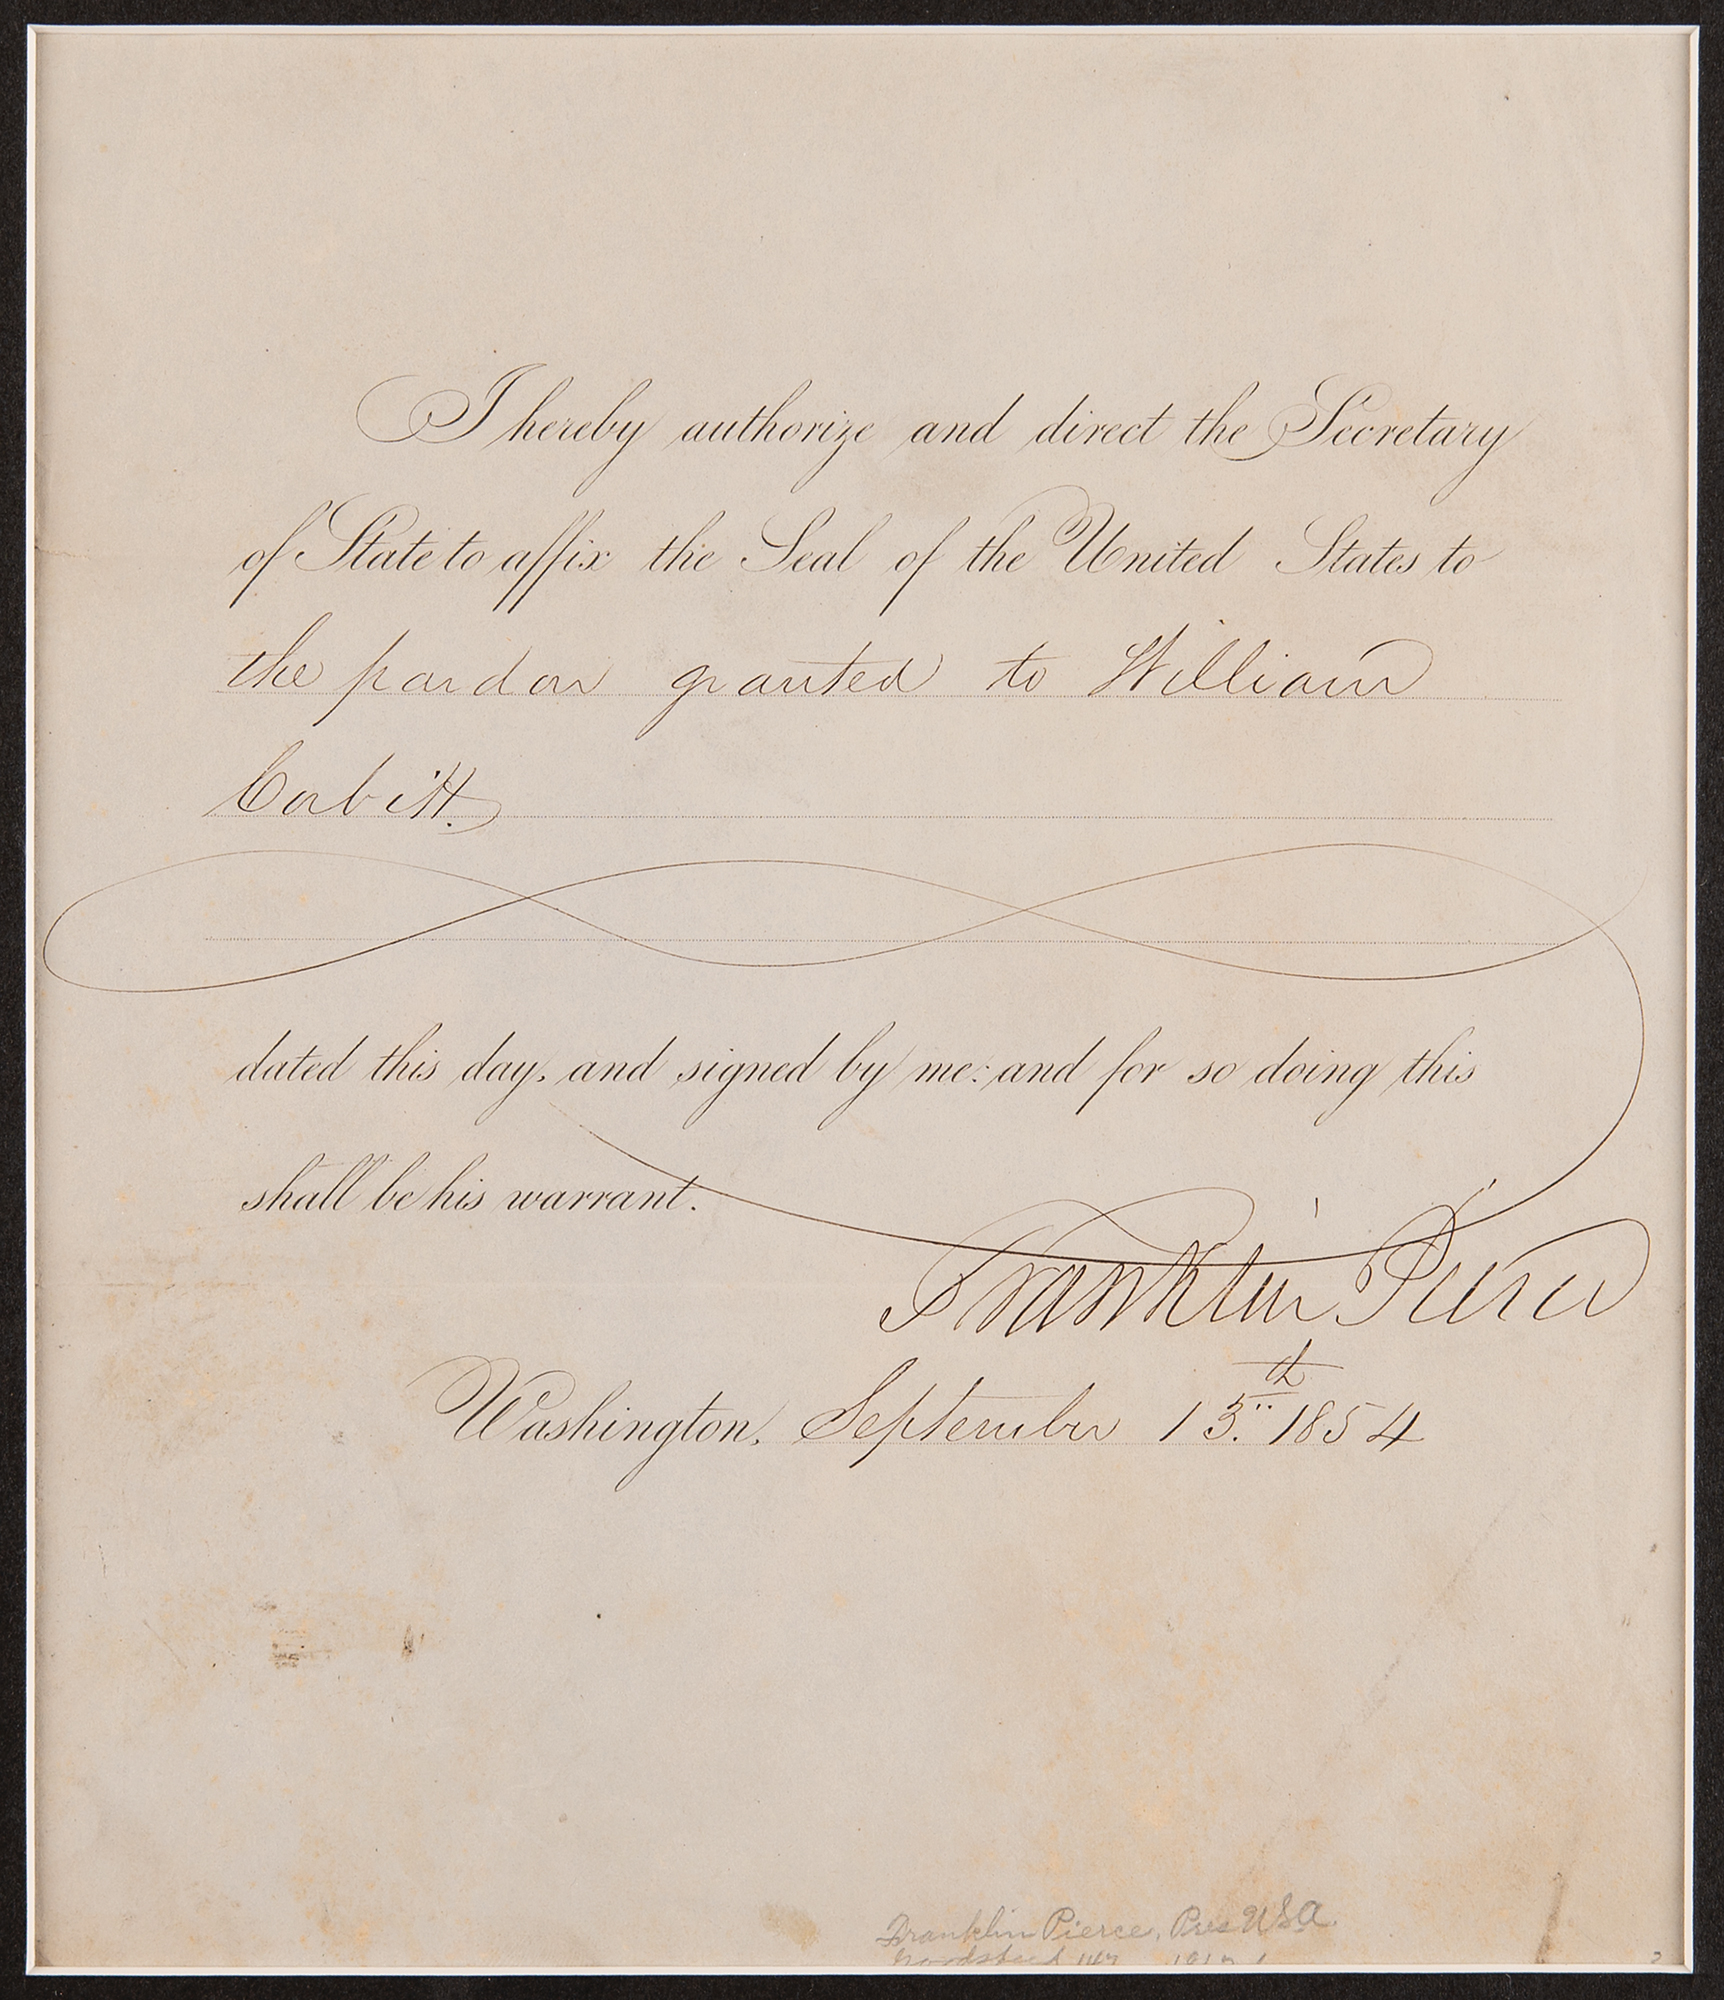 I hereby authorize and direct the Secretary
of State to affix the Seal of the United States to
the pardon granted to William
Corbitt.
dated this day, and signed by me: and for so doing this
shall be his warrant.
Franklin Pierce
Washington, September 13th. 1854
Franklin Pierce, Pres USA